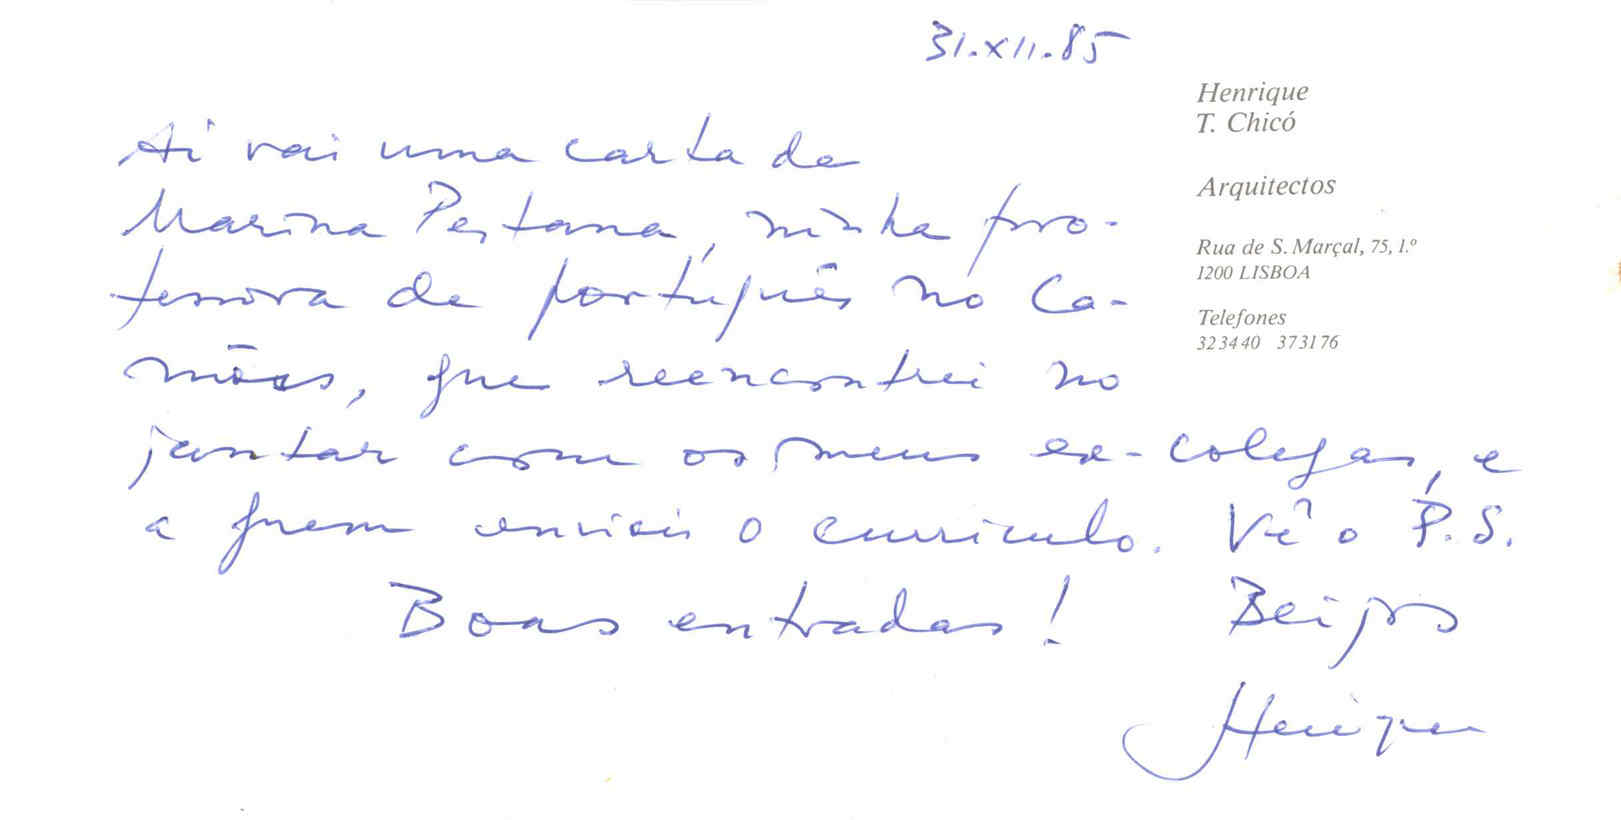 31.XII.85
Henrique
T. Chicó
Arquitectos
Rua de S. Marçal, 75, 1.º
1200 LISBOA
Telefones
323440 373176
Aí vai uma carta da
Marina Pestana, minha pro-
fessora de português no Ca-
mões, que reencontrei no
jantar com os meus ex-colegas, e
a quem enviei o curriculo. Vê o P.S.
Boas entradas! Beijos
Henrique